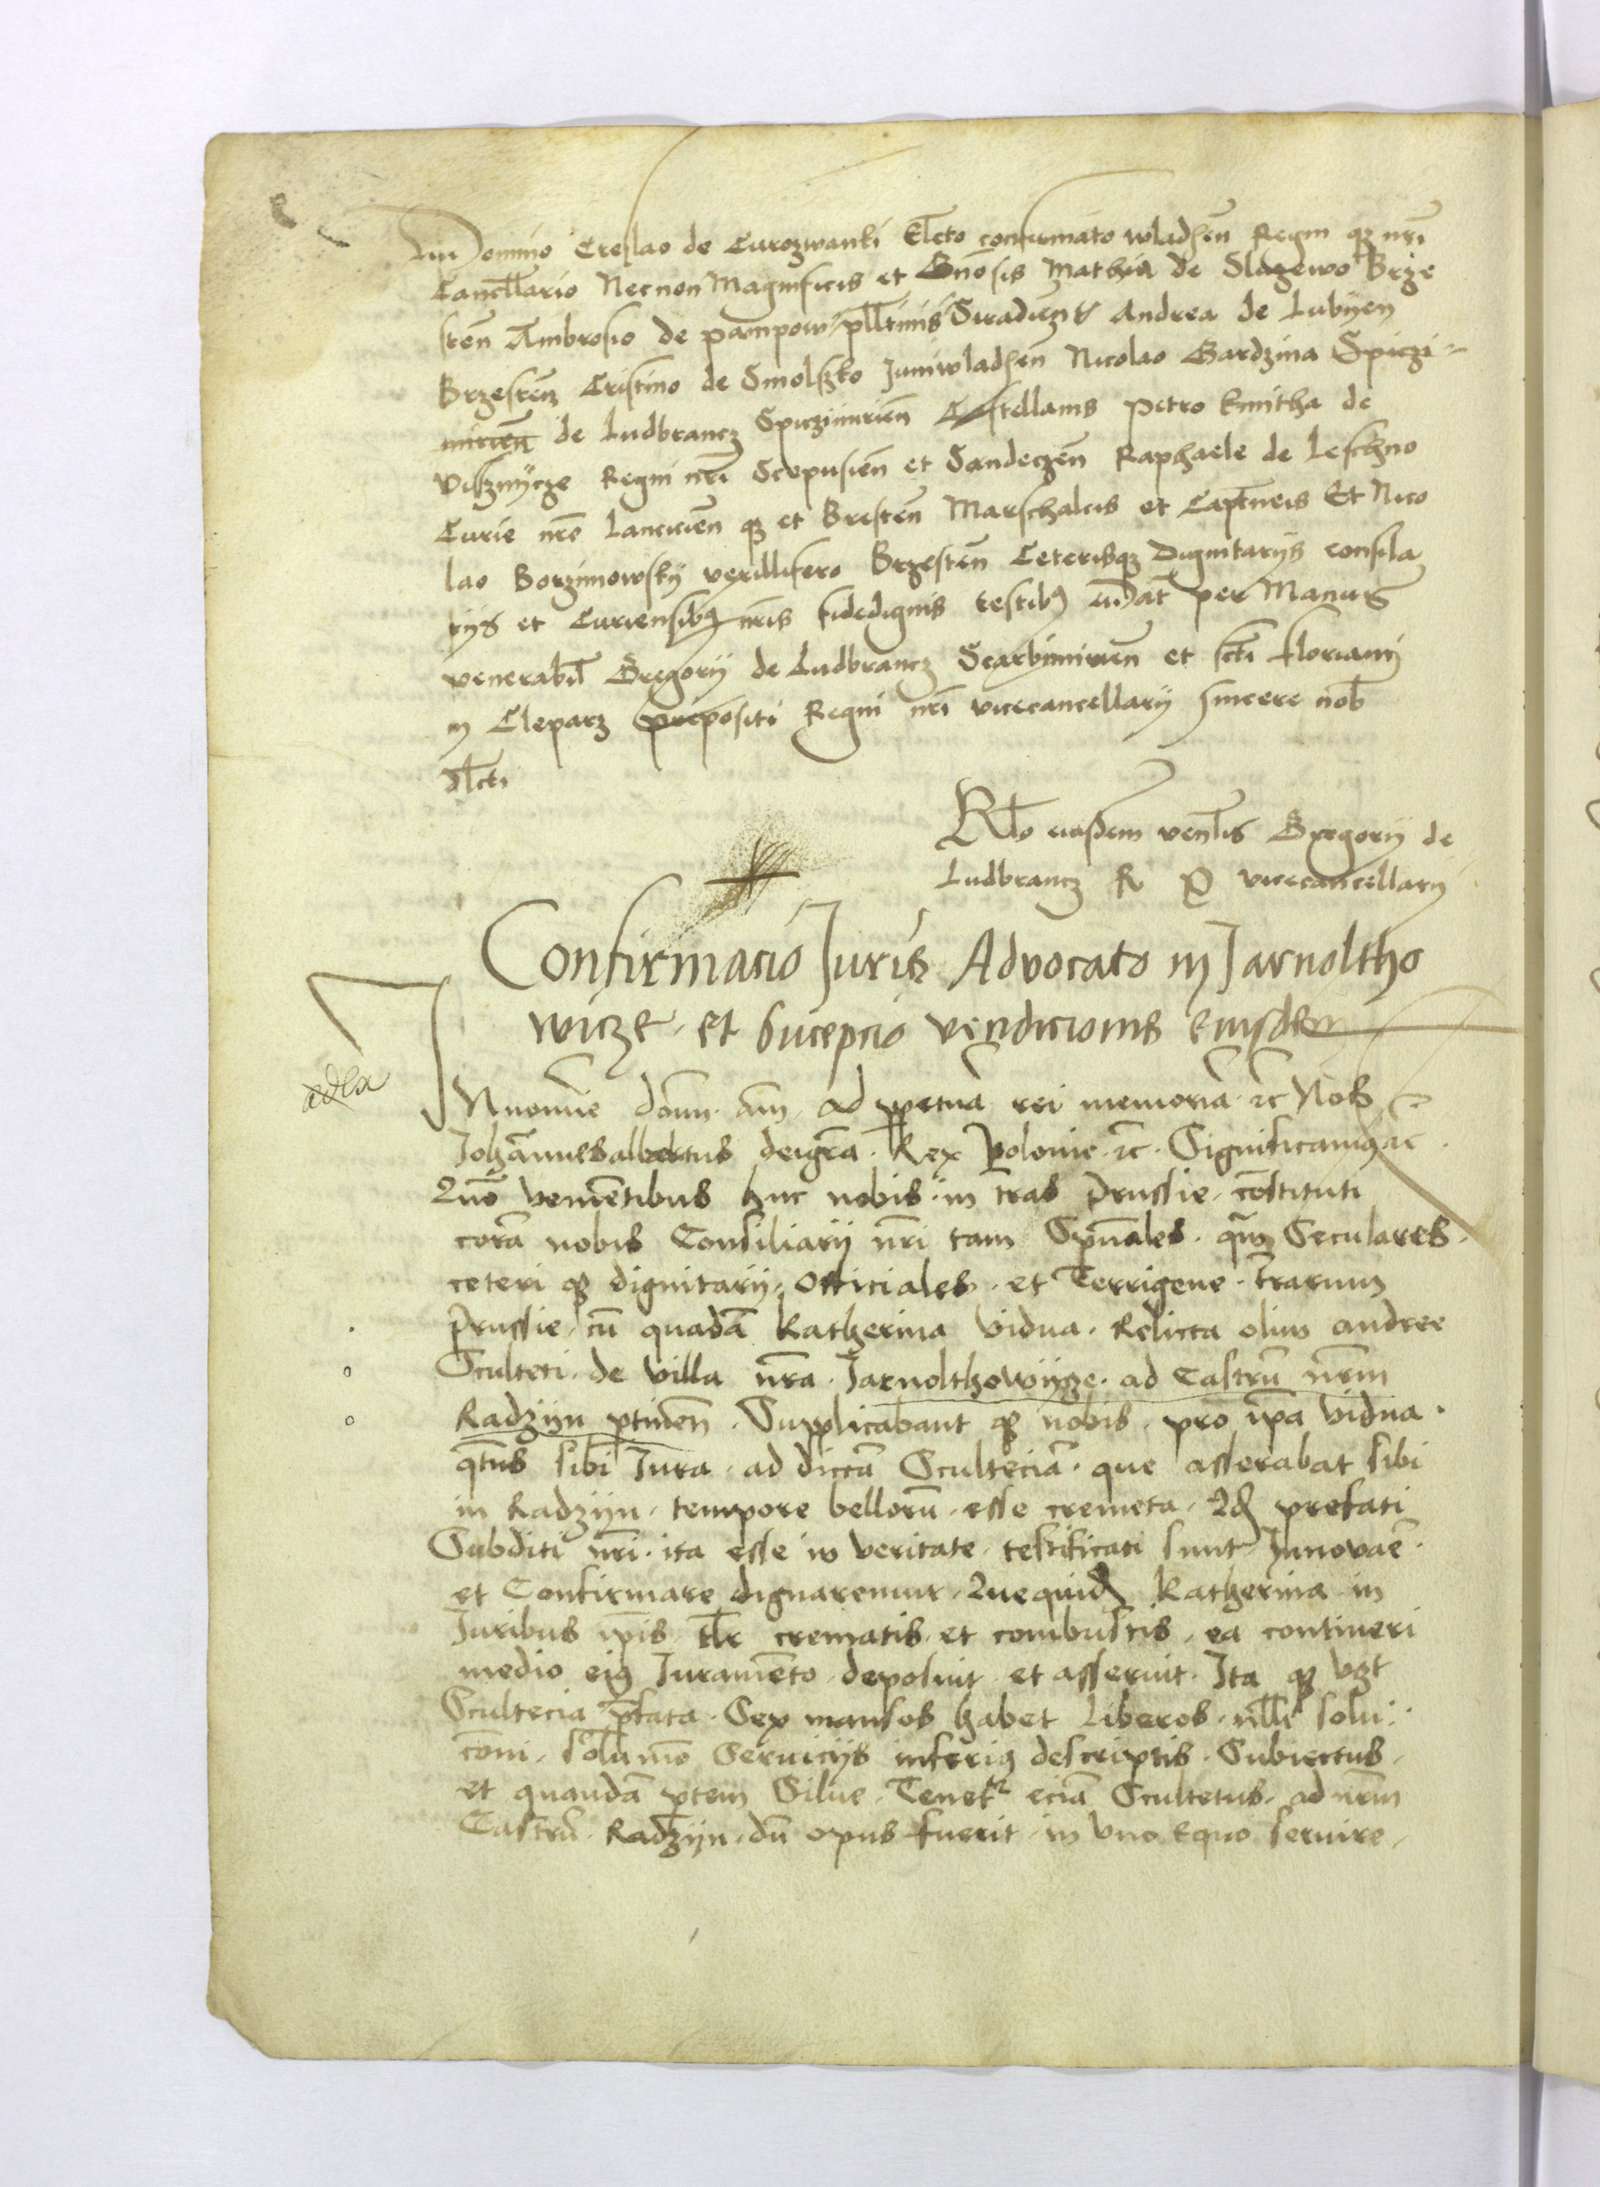 Domino Creslao de Curozwanki Electo confirmato wladislen Regni qz nri
Cancellario Necnon Magnificis et Gnosis Mathia de Slazewo Brze
sten Ambrosio de pampow plltinis Siradien Andrea de Lubyen
Brzesten Cristino de Smolsko Juniwladslen Nicolao Gardzina Spiczi
mirien de Ludbrancz Spiczimirien Castellanis Petro kmitha de
viszmycze Regni nri Scepusien et Sandeczen Raphaele de Leschno
Curie nre Lancicien qz et Bresten Marschalcis et Captneis Et Nico
lao Borzimowsky vexillifero Brzesten Ceterisqz Dignitarijs consilia
rijs et Curiensibz nris fidedignis testibz Dat per Manus
venerabil Gregorij de Ludbrancz Scarbimirien et scti floriani
in Cleparz prepositi Regni nri vicecancellarij sincere nob
dlcti
Rlo eiusdem venlis Gregorij de
Ludbrancz R P vicecancellarij
Confirmacio Juris Advocato in Jarnoltho
wicze et sucepcio vendicionis eiusdem
In nomie domi am ad ppetua rei memoria zc Nos
Johannesalbertus deigra Rex Polonie zc Significamus zc
Quo venientibus huc nobis in tras Prussie costituti
cora nobis Consiliarij nri tam Spuales qm Seculares
ceteri qz dignitarij Officiales et Terrigene trarum
Prussie cu quada Katherina vidua Relicta olim andree
Sculteti de villa nra Jarnolthowijcze ad Castru nrm
Radzijn ptinen Supplicabant qz nobis pro ipa vidua
qtus sibi Jura ad dicta Scultecia que asserabat sibi
in Radzijn tempore belloru esse cremeta Qd prefati
Subditi nri ita esse in veritate testificati sunt Innovae
et Confirmare dignaremur Quequid Katherina in
Juribus ipis tlr crematis et combustis ea contineri
medio eiq Juramento deposuit et asseruit Ita qz vzt
Scultecia pfata Sex mansos habet Liberos nlli solu
coni solumo Seruicijs inferiq descriptis Subiectus
et quanda ptem Silue Tenetr ecia Scultetus ad nrm
Castru Radzijn du opus fuerit in vno equo seruire